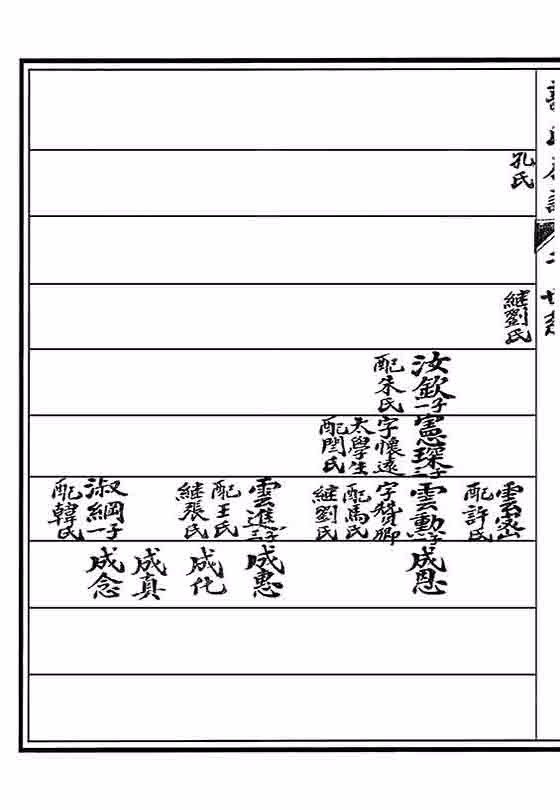 孔氏
継劉氏
汝欽一子
配朱氏
憲琛二子
字懷遠
太學生
配閆氏
雲密
配許氏
雲勲一子
字賛卿
配馬氏
継劉氏
雲進三子
配王氏
継張氏
淑綱一子
配韓氏
成恩
成惠
成化
成真
成念